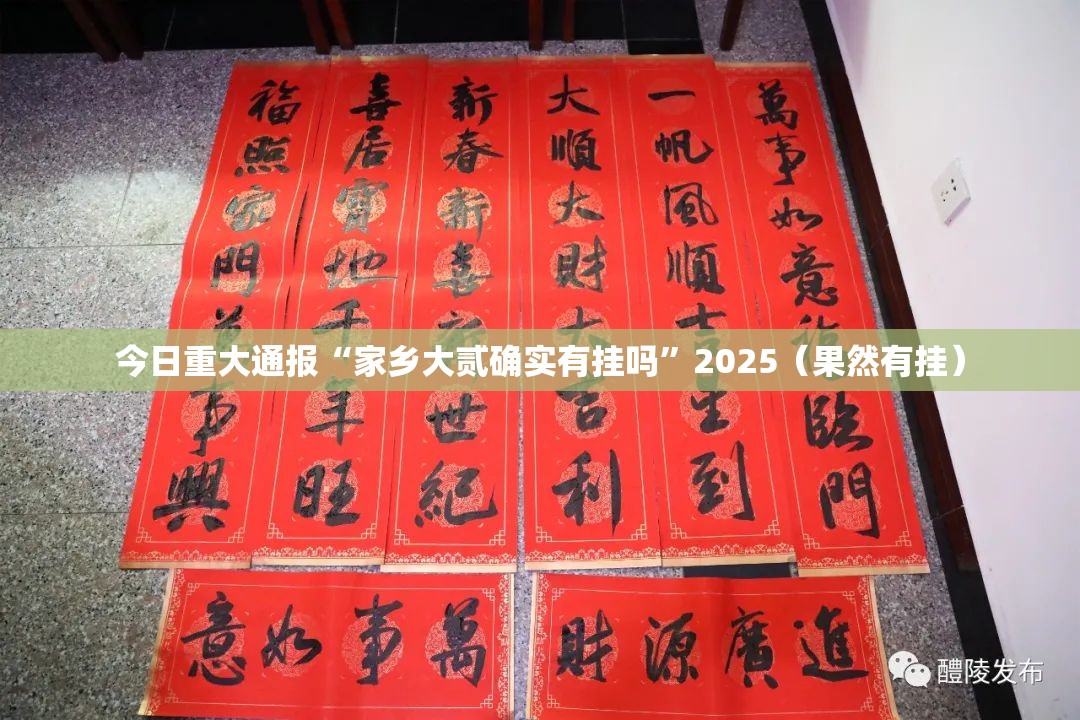 萬事如意福臨門
一帆風順吉星到
大順大財大吉利
新春新喜新世紀
喜居寶地千年旺
福照家門萬事興
今日重大通报“家乡大贰确实有挂吗”2025（果然有挂）
萬事如意
財源廣進
醴陵发布